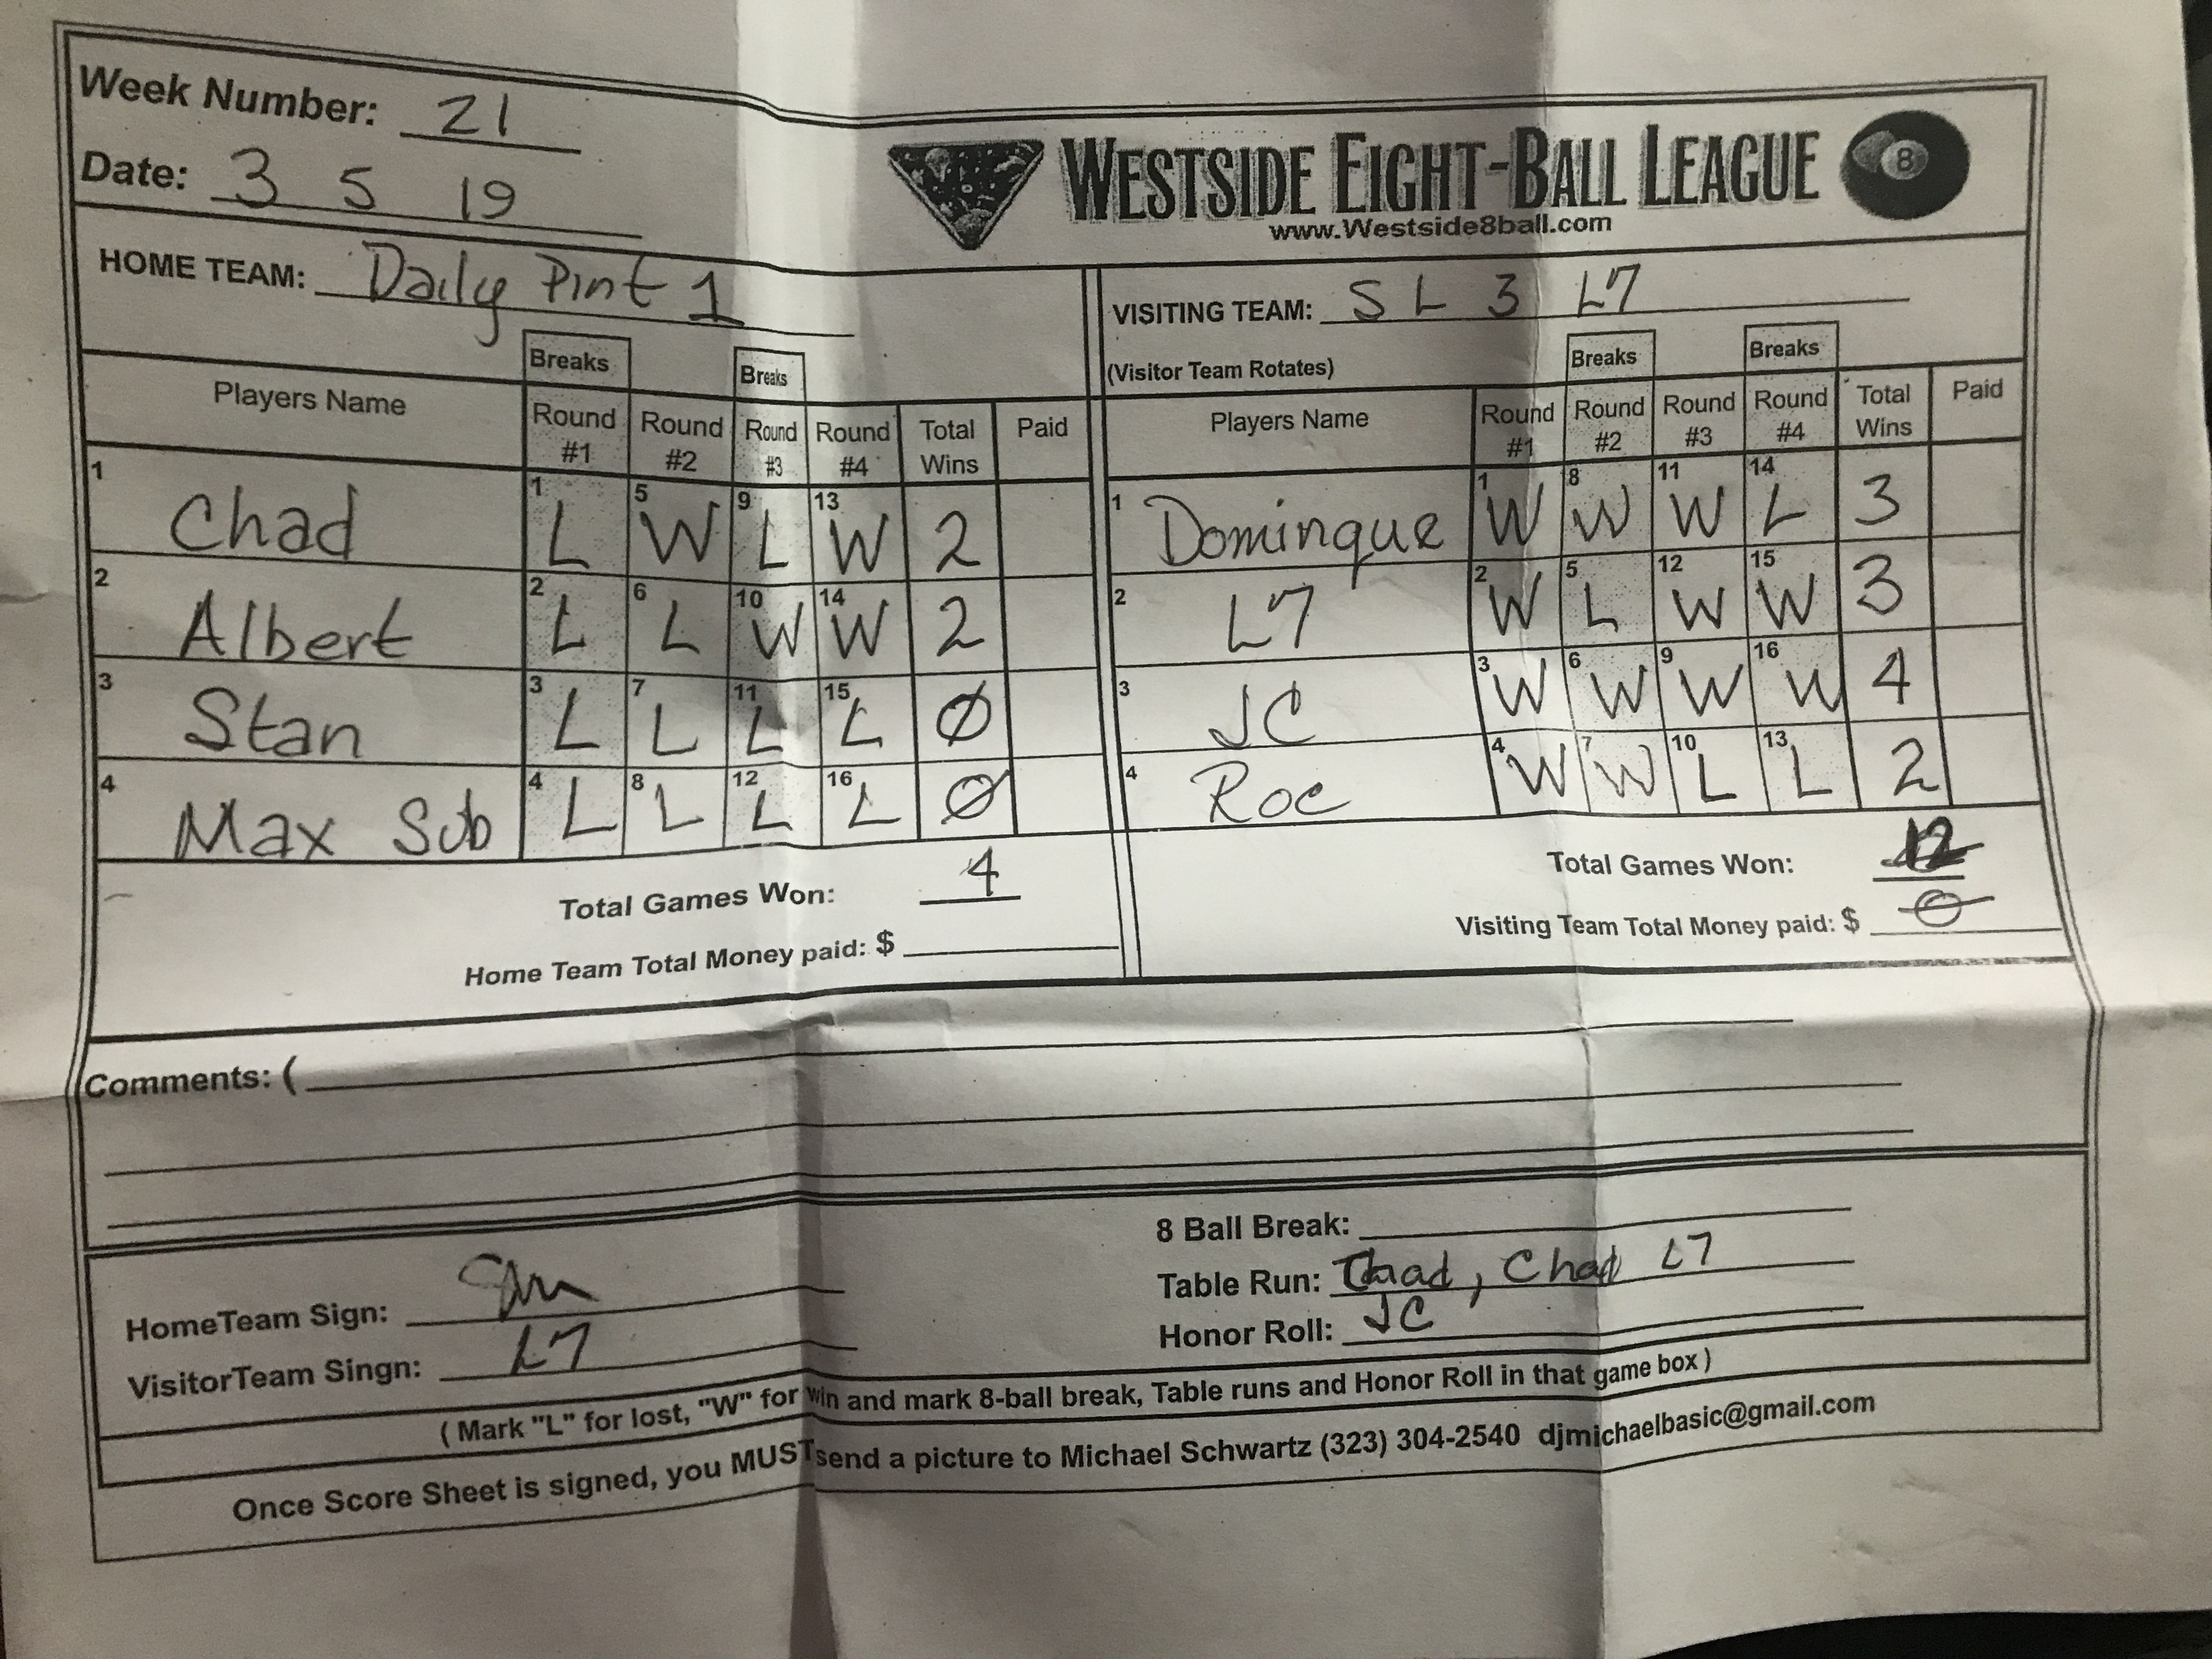 Week Number: 21
Date: 3 5 19
WESTSIDE EIGHT-BALL LEAGUE 8
www.Westside8ball.com
HOME TEAM: Daily Pint 1
VISITING TEAM: S L 3 L7
(Visitor Team Rotates)
Breaks Breaks
Players Name Round #1 Round #2 Round #3 Round #4 Total Wins Paid
1 Chad 1 L 5 W 9 L 13 W 2
2 Albert 2 L 6 L 10 W 14 W 2
3 Stan 3 L 7 L 11 L 15 L Ø
4 Max Sub 4 L 8 L 12 L 16 L Ø
Total Games Won: 4
Home Team Total Money paid: $
Breaks Breaks
Players Name Round #1 Round #2 Round #3 Round #4 Total Wins Paid
1 Dominque 1 W 8 W 11 W 14 L 3
2 L7 2 W 5 L 12 W 15 W 3
3 JC 3 W 6 W 9 W 16 W 4
4 Roc 4 W 7 W 10 L 13 L 2
Total Games Won: 12
Visiting Team Total Money paid: $ 0
Comments: (
8 Ball Break:
Table Run: Chad, Chad L7
Honor Roll: JC
HomeTeam Sign:
VisitorTeam Singn: L7
( Mark "L" for lost, "W" for win and mark 8-ball break, Table runs and Honor Roll in that game box )
Once Score Sheet is signed, you MUST send a picture to Michael Schwartz (323) 304-2540 djmichaelbasic@gmail.com